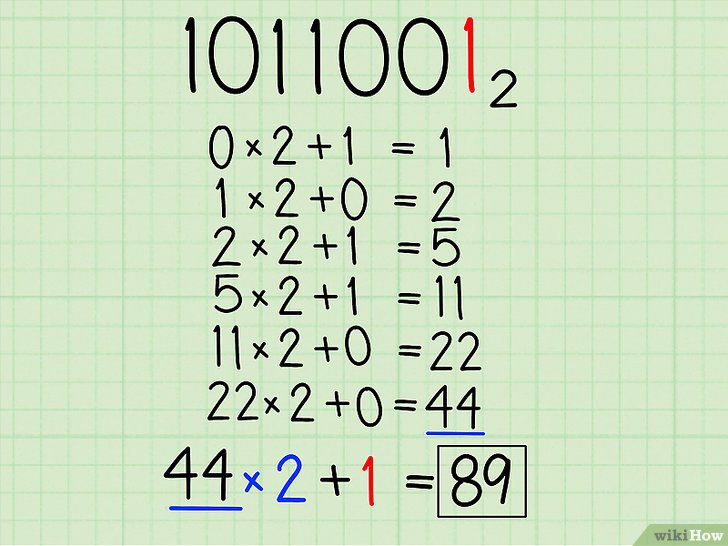 1011001₂
0 × 2 + 1 = 1
1 × 2 + 0 = 2
2 × 2 + 1 = 5
5 × 2 + 1 = 11
11 × 2 + 0 = 22
22 × 2 + 0 = 44
44 × 2 + 1 = 89
wikiHow